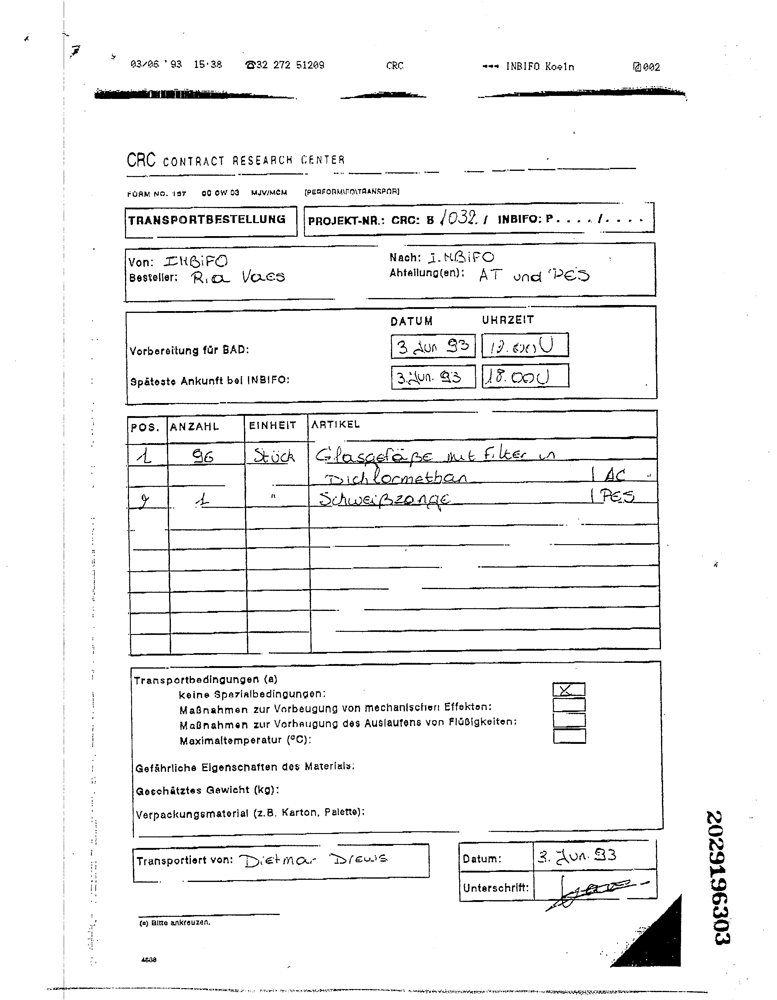 7
03/06 '93 15:38 ☎32 272 51209 CRC →→→ INBIFO Koeln 002
CRC CONTRACT RESEARCH CENTER
FORM NO. 197 00 OW 03 MJV/MCM
TRANSPORTBESTELLUNG PROJEKT-NR.: CRC: B /032. / INBIFO: P . . . . / . . . .
Von: INBIFO Nach: INBIFO
Besteller: Ria Vaes Abteilung(en): AT und PES
DATUM UHRZEIT
Vorbereitung für BAD: 3 Jun 93
Späteste Ankunft bei INBIFO: 3. Jun. 93 18.00U
POS. ANZAHL EINHEIT ARTIKEL
1 96 Stück Glasgefäße mit Filter in
Dichlormethan / AC
2 1 " Schweißzange / PES
Transportbedingungen (a)
keine Spezialbedingungen: X
Maßnahmen zur Vorbeugung von mechanischen Effekten:
Maßnahmen zur Vorbeugung des Auslaufens von Flüßigkeiten:
Maximaltemperatur (°C):
Gefährliche Eigenschaften des Materials:
Geschätztes Gewicht (kg):
Verpackungsmaterial (z.B. Karton, Palette):
Transportiert von: Dietmar Drews Datum: 3. Jun. 93
Unterschrift:
(a) Bitte ankreuzen.
2029196303